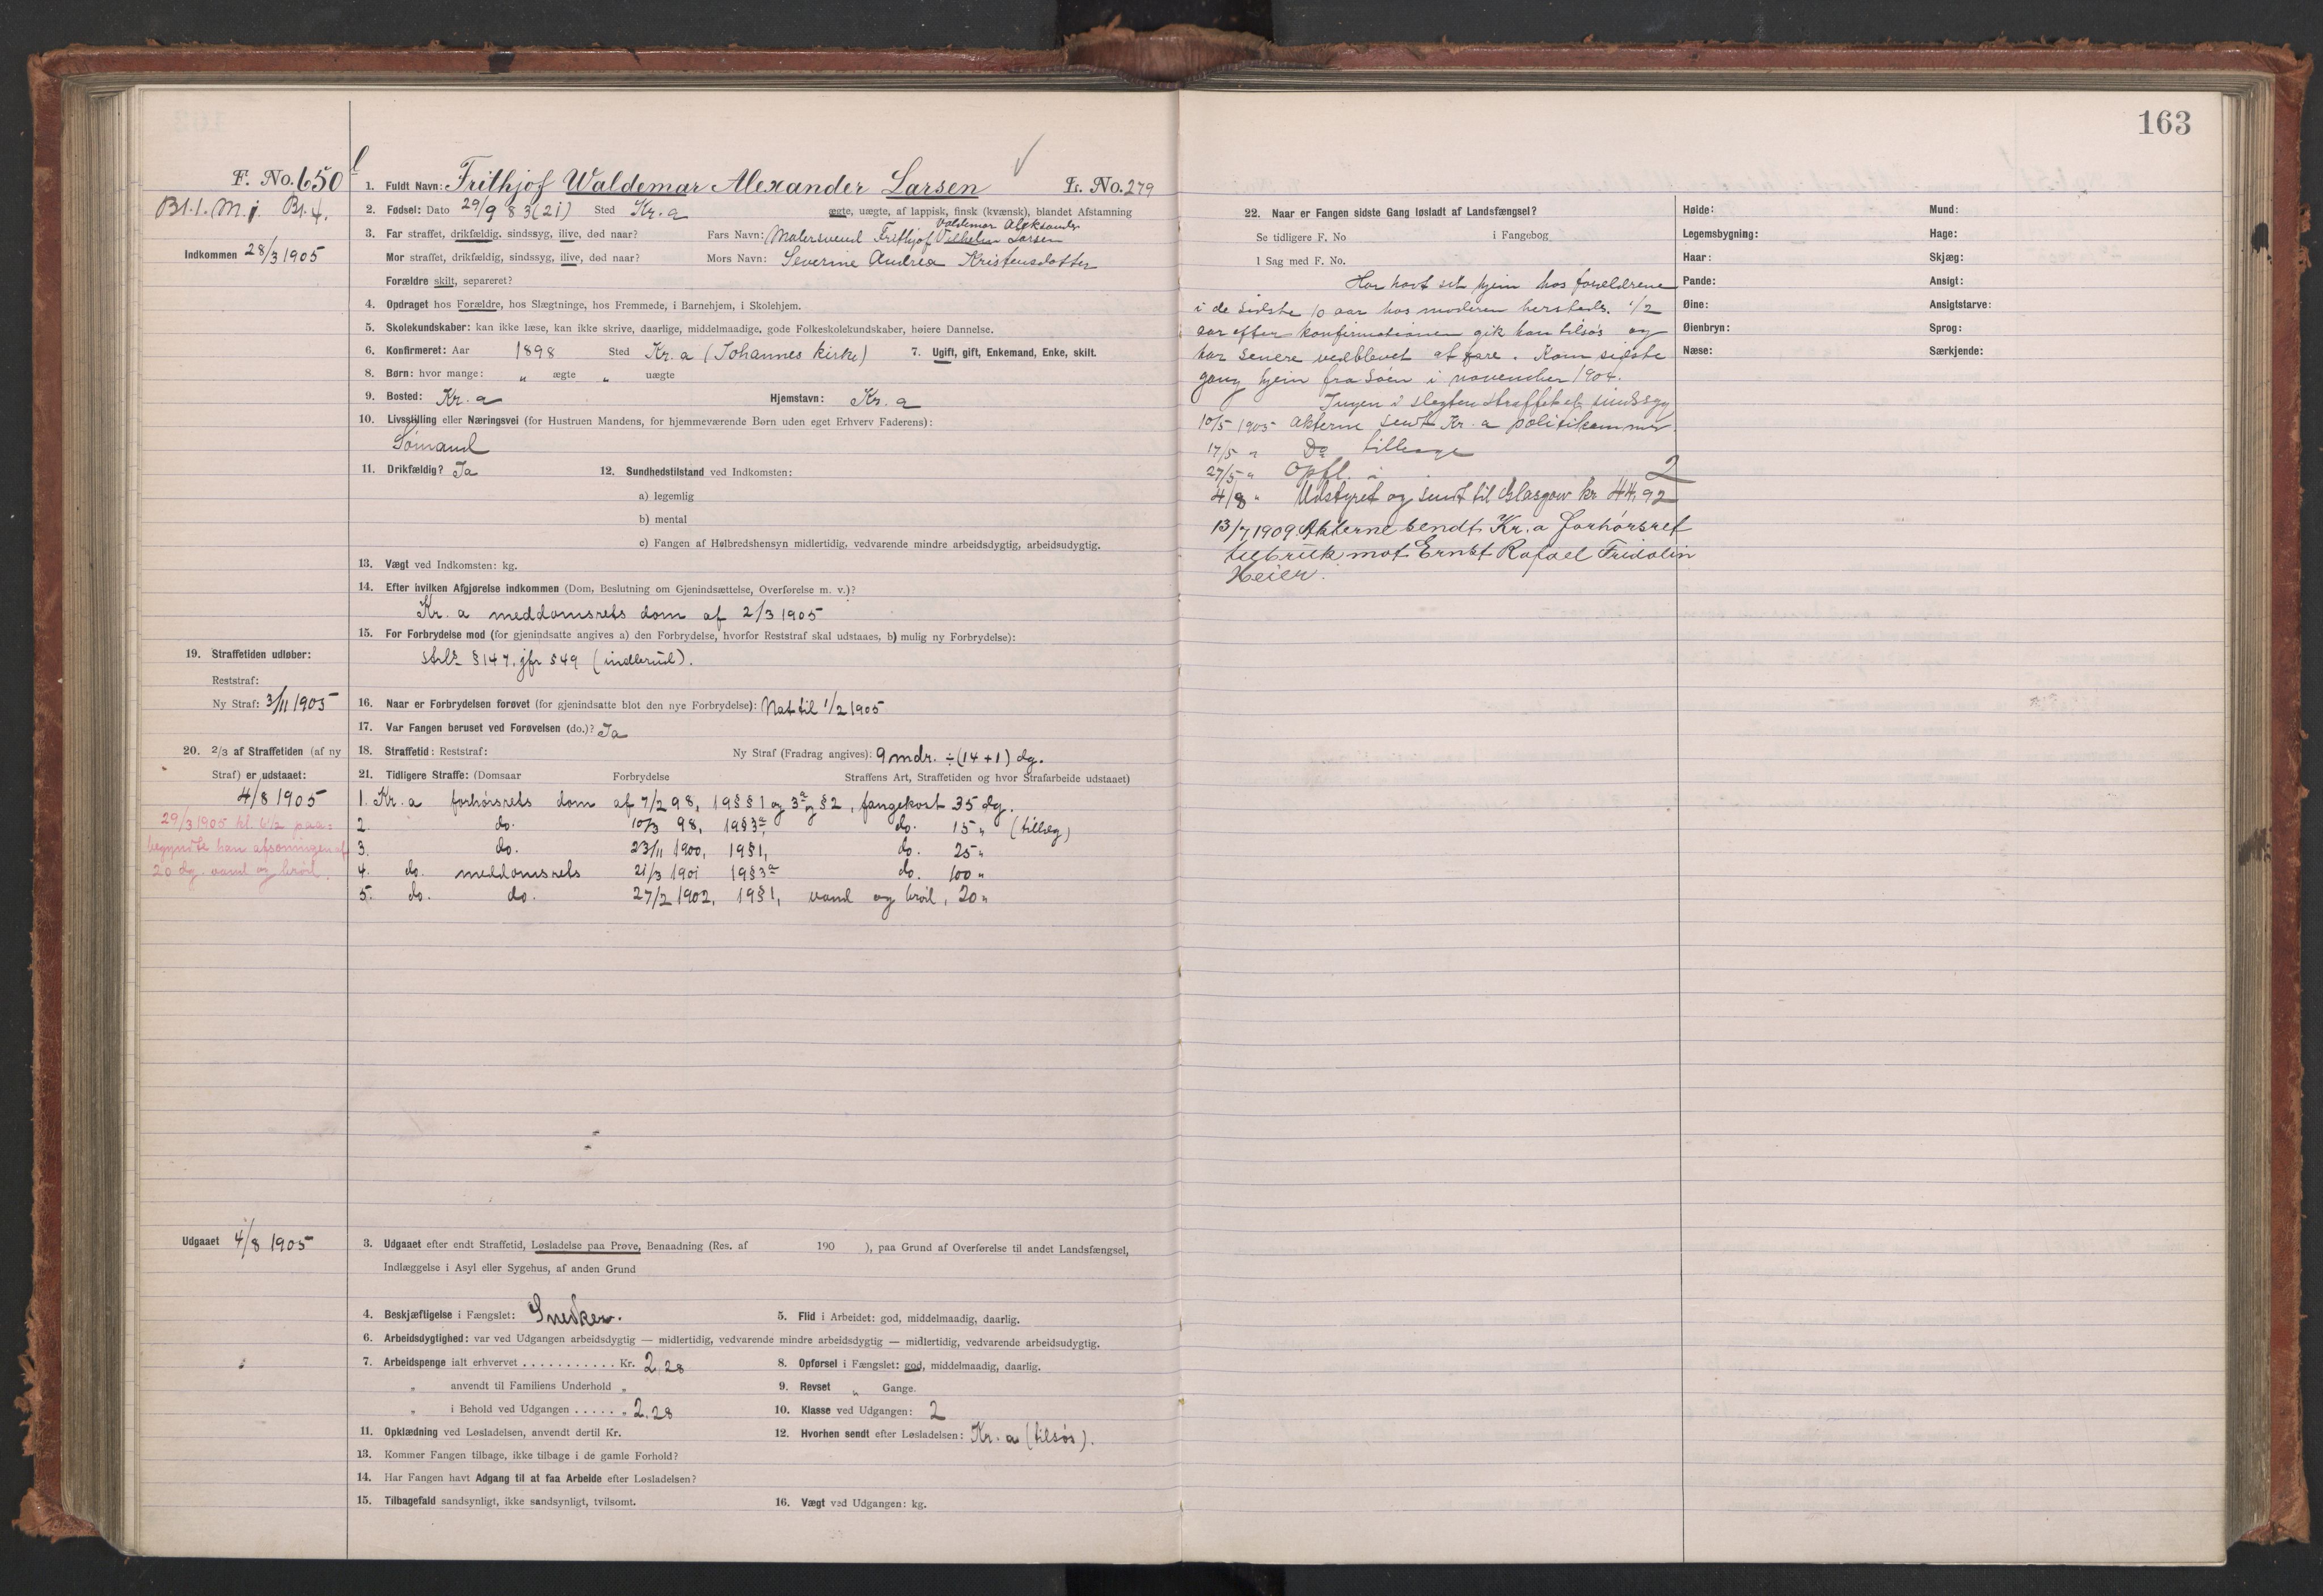 163
F. No. 650
Bl. 1. M. j. Bl. 4.
Indkommen 28/3 1905
1. Fuldt Navn: Frithjof Waldemar Alexander Larsen L. No. 279
2. Fødsel: Dato 29/9 83 (21) Sted Kr.a ægte, uægte, af lappisk, finsk (kvænsk), blandet Afstamning
Valdemar Aleksander
3. Far straffet, drikfældig, sindssyg, ilive, død naar? Fars Navn: Malersvend Frithjof Vilhelm Larsen
Mor straffet, drikfældig, sindssyg, ilive, død naar? Mors Navn: Severine Andrea Kristensdatter
Forældre skilt, separeret?
4. Opdraget hos Forældre, hos Slægtninge, hos Fremmede, i Barnehjem, i Skolehjem.
5. Skolekundskaber: kan ikke læse, kan ikke skrive, daarlige, middelmaadige, gode Folkeskolekundskaber, høiere Dannelse.
6. Konfirmeret: Aar 1898 Sted Kr.a (Johannes kirke) 7. Ugift, gift, Enkemand, Enke, skilt.
8. Børn: hvor mange: „ ægte „ uægte
9. Bosted: Kr.a Hjemstavn: Kr.a
10. Livsstilling eller Næringsvei (for Hustruen Mandens, for hjemmeværende Børn uden eget Erhverv Faderens):
Sømand
11. Drikfældig? Ja 12. Sundhedstilstand ved Indkomsten:
a) legemlig
b) mental
c) Fangen af Helbredshensyn midlertidig, vedvarende mindre arbeidsdygtig, arbeidsudygtig.
13. Vægt ved Indkomsten: kg.
14. Efter hvilken Afgjørelse indkommen (Dom, Beslutning om Gjenindsættelse, Overførelse m. v.)?
Kr.a meddomsrets dom af 2/3 1905
15. For Forbrydelse mod (for gjenindsatte angives a) den Forbrydelse, hvorfor Reststraf skal udstaaes, b) mulig ny Forbrydelse):
strl. § 147. jfr § 49 (indbrud).
16. Naar er Forbrydelsen forøvet (for gjenindsatte blot den nye Forbrydelse): Nat til 1/2 1905
17. Var Fangen beruset ved Forøvelsen (do.)? Ja
18. Straffetid: Reststraf: Ny Straf (Fradrag angives): 9 mdr. ÷ (14 + 1) dg.
19. Straffetiden udløber:
Reststraf:
Ny Straf: 3/11 1905
20. 2/3 af Straffetiden (af ny
Straf) er udstaaet:
4/8 1905
29/3 1905 kl. 6 1/2 paa-
begyndte han afsoningen af
20 dg. vand og brød.
21. Tidligere Straffe: (Domsaar Forbrydelse Straffens Art, Straffetiden og hvor Strafarbeide udstaaet)
1. Kr.a forhørsrets dom af 7/2 98, 19 §§ 1 og 3a og § 2, fangekost 35 dg.
2. do. 10/3 98, 19 § 3a, do. 15 „ (tillæg)
3. do. 23/11 1900, 19 § 1, do. 25 „
4. do. meddomsrets 21/3 1901 19 § 3a do. 100 „
5. do. do. 27/2 1902, 19 § 1, vand og brød, 20 „
Udgaaet 4/8 1905
3. Udgaaet efter endt Straffetid, Løsladelse paa Prøve, Benaadning (Res. af 190 ), paa Grund af Overførelse til andet Landsfængsel,
Indlæggelse i Asyl eller Sygehus, af anden Grund
4. Beskjæftigelse i Fængslet: Snedker. 5. Flid i Arbeidet: god, middelmaadig, daarlig.
6. Arbeidsdygtighed: var ved Udgangen arbeidsdygtig — midlertidig, vedvarende mindre arbeidsdygtig — midlertidig, vedvarende arbeidsudygtig.
7. Arbeidspenge ialt erhvervet . . . . . . . . . . . Kr. 2,28 8. Opførsel i Fængslet: god, middelmaadig, daarlig.
„ anvendt til Familiens Underhold „ 9. Revset „ Gange.
„ i Behold ved Udgangen . . . . . „ 2,28 10. Klasse ved Udgangen: 2
11. Opklædning ved Løsladelsen, anvendt dertil Kr. 12. Hvorhen sendt efter Løsladelsen: Kr.a (tilsøs).
13. Kommer Fangen tilbage, ikke tilbage i de gamle Forhold?
14. Har Fangen havt Adgang til at faa Arbeide efter Løsladelsen?
15. Tilbagefald sandsynligt, ikke sandsynligt, tvilsomt. 16. Vægt ved Udgangen: kg.
22. Naar er Fangen sidste Gang løsladt af Landsfængsel?
Se tidligere F. No i Fangebog
I Sag med F. No.
Har havt sit hjem hos forældrene
i de sidste 10 aar hos moderen hersteds. 1/2
aar efter konfirmationen gik han tilsøs og
har senere vedblevet at fare. Kom sidste
gang hjem fra Søen i november 1904.
Ingen i slegten straffet el. sindssyg
10/5 1905 Akterne sendt Kr.a politikammer
17/5 „ Do tilbage
27/5 „ Opfl. i 2
4/8 „ Udstyret og sendt til Glasgow kr 44,92
13/7 1909 Akterne sendt Kr.a Forhørsret
til bruk mot Ernst Rafael Fridolin
Heier.
Høide: Mund:
Legemsbygning: Hage:
Haar: Skjæg:
Pande: Ansigt:
Øine: Ansigtsfarve:
Øienbryn: Sprog:
Næse: Særkjende: